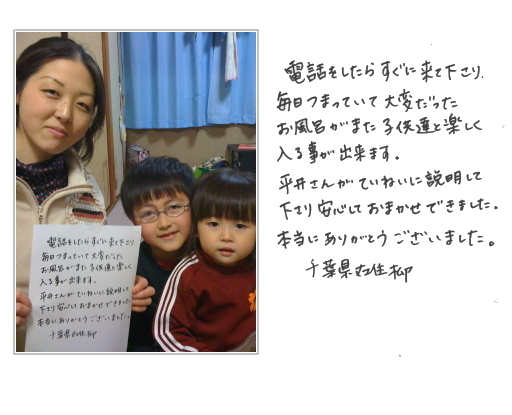 電話をしたらすぐに来て下さり、
毎日つまっていて大変だった
お風呂がまた子供達と楽しく
入る事が出来ます。
平井さんがていねいに説明して
下さり安心しておまかせできました。
本当にありがとうございました。
千葉県在住
電話をしたらすぐに来て下さり、
毎日つまっていて大変だった
お風呂がまた子供達と楽しく
入る事が出来ます。
平井さんがていねいに説明して
下さり安心しておまかせできました。
本当にありがとうございました。
千葉県在住